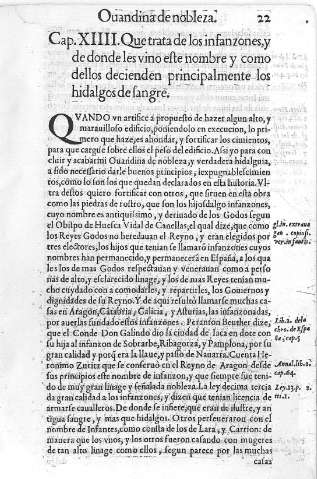 Ouandina de nobleza. 22
Cap. XIIII. Que trata de los infanzones, y
de donde les vino este nombre y como
dellos decienden principalmente los
hidalgos de sangre.
QVANDO vn artifice a proposito de hazer algun alto, y
marauilloso edificio, poniendolo en execucion, lo pri-
mero que haze, es ahondar, y fortificar los cimientos,
para que cargue sobre ellos el peso del edificio. Assi yo para con
cluir y acabar mi Ouandina de nobleza, y verdadera hidalguia,
a sido necessario darle buenos principios, inexpugnables cimien
tos, como lo son los que quedan declarados en esta historia. Vl
tra destos quiero fortificar con otros, que siruen en esta obra
como las piedras de rostro, que son los hijosdalgo infanzones,
cuyo nombre es antiquissimo, y deriuado de los Godos segun
el Obispo de Huesca Vidal de Canellas, el qual dize, que como
los Reyes Godos no heredauan el Reyno, y eran elegidos por
tres electores, los hijos que tenian se llamaró infanzones cuyos
nombres han permanecido, y permanecerá en España, a los que
les los de mas Godos respectauan y venerauan como a perso
nas de alto, y esclarecido linage, y los de mas Reyes tenian mu-
cho cuydado con acomodarles, y repartirles, los Gouiernos y
dignidades de su Reyno. Y de aqui resultó llamarse muchas ca-
sas en Aragon, Cataluña, Galicia, y Asturias, las infanzonadas,
por auerlas fundado estos infanzones. Peranton Beuther dize,
que el Conde Don Galindo dio la ciudad de Iaca en dote con
su hija al infanzon de Sobrarbe, Ribagorza, y Pamplona, por su
gran calidad y porq era la llaue, y paso de Nauarra. Cuenta He-
ronimo Zurita que se conseruó en el Reyno de Aragon desde
sus principios este nombre de infanzon, y que siempre fue teni-
do de muy gran linage y señalada nobleza. La ley decima tercia
da gran calidad a los infanzones, y dizen que tenian licencia de
armarse caualleros. De donde se infiere, que eran de ilustre, y an
tigua sangre, y mas que hidalgos. Otros perseueraron con el
nombre de Infantes, como los de los de Lara, y Carrion: de
manera que los vnos, y los otros fueron casando con mugeres
de tan alto linage como ellos, segun parece por las muchas
casas
gl. in. extraua
ver. infansu.
Lib. 2. dela
chro. de Espa
cap. 5
Annal. lib. 2.
cap. 64.
Ley. 13. p. 2.
tit. 1.